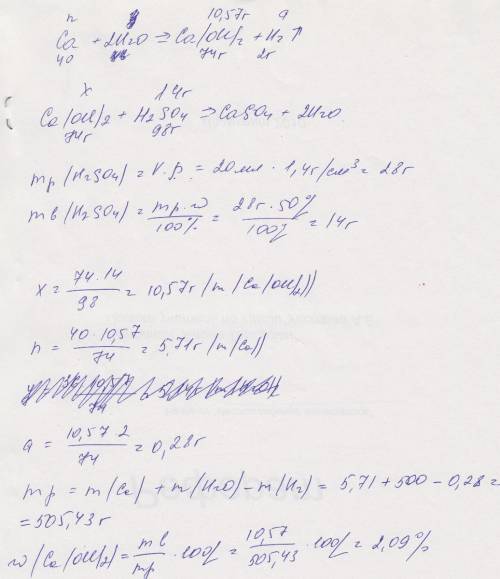 n y 10,57г a
Ca + 2H2O => Ca(OH)2 + H2↑
40 74г 2г
x 14г
Ca(OH)2 + H2SO4 => CaSO4 + 2H2O
74г 98г
mp(H2SO4) = V·ρ = 20мл · 1,4г/см³ = 28г
mв(H2SO4) = mp·w / 100% = 28г·50% / 100% = 14г
x = 74·14 / 98 = 10,57г (m(Ca(OH)2))
n = 40·10,57 / 74 = 5,71г (m(Ca))
a = 10,57·2 / 74 = 0,28г
mp = m(Ca) + m(H2O) - m(H2) = 5,71 + 500 - 0,28 =
= 505,43г
w(Ca(OH)2) = mв / mp · 100% = 10,57 / 505,43 · 100% = 2,09%